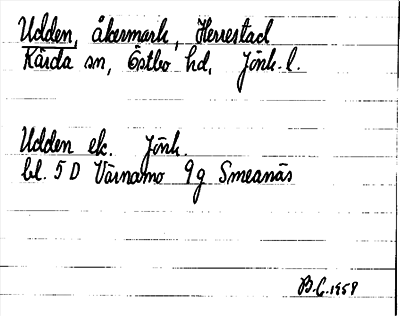 Udden, åkermark, Herrestad
Kärda sn, Östbo hd, Jönk. l.
Udden ek. Jönk.
bl. 5 D Värnamo 9g Smeanäs
B.C. 1958